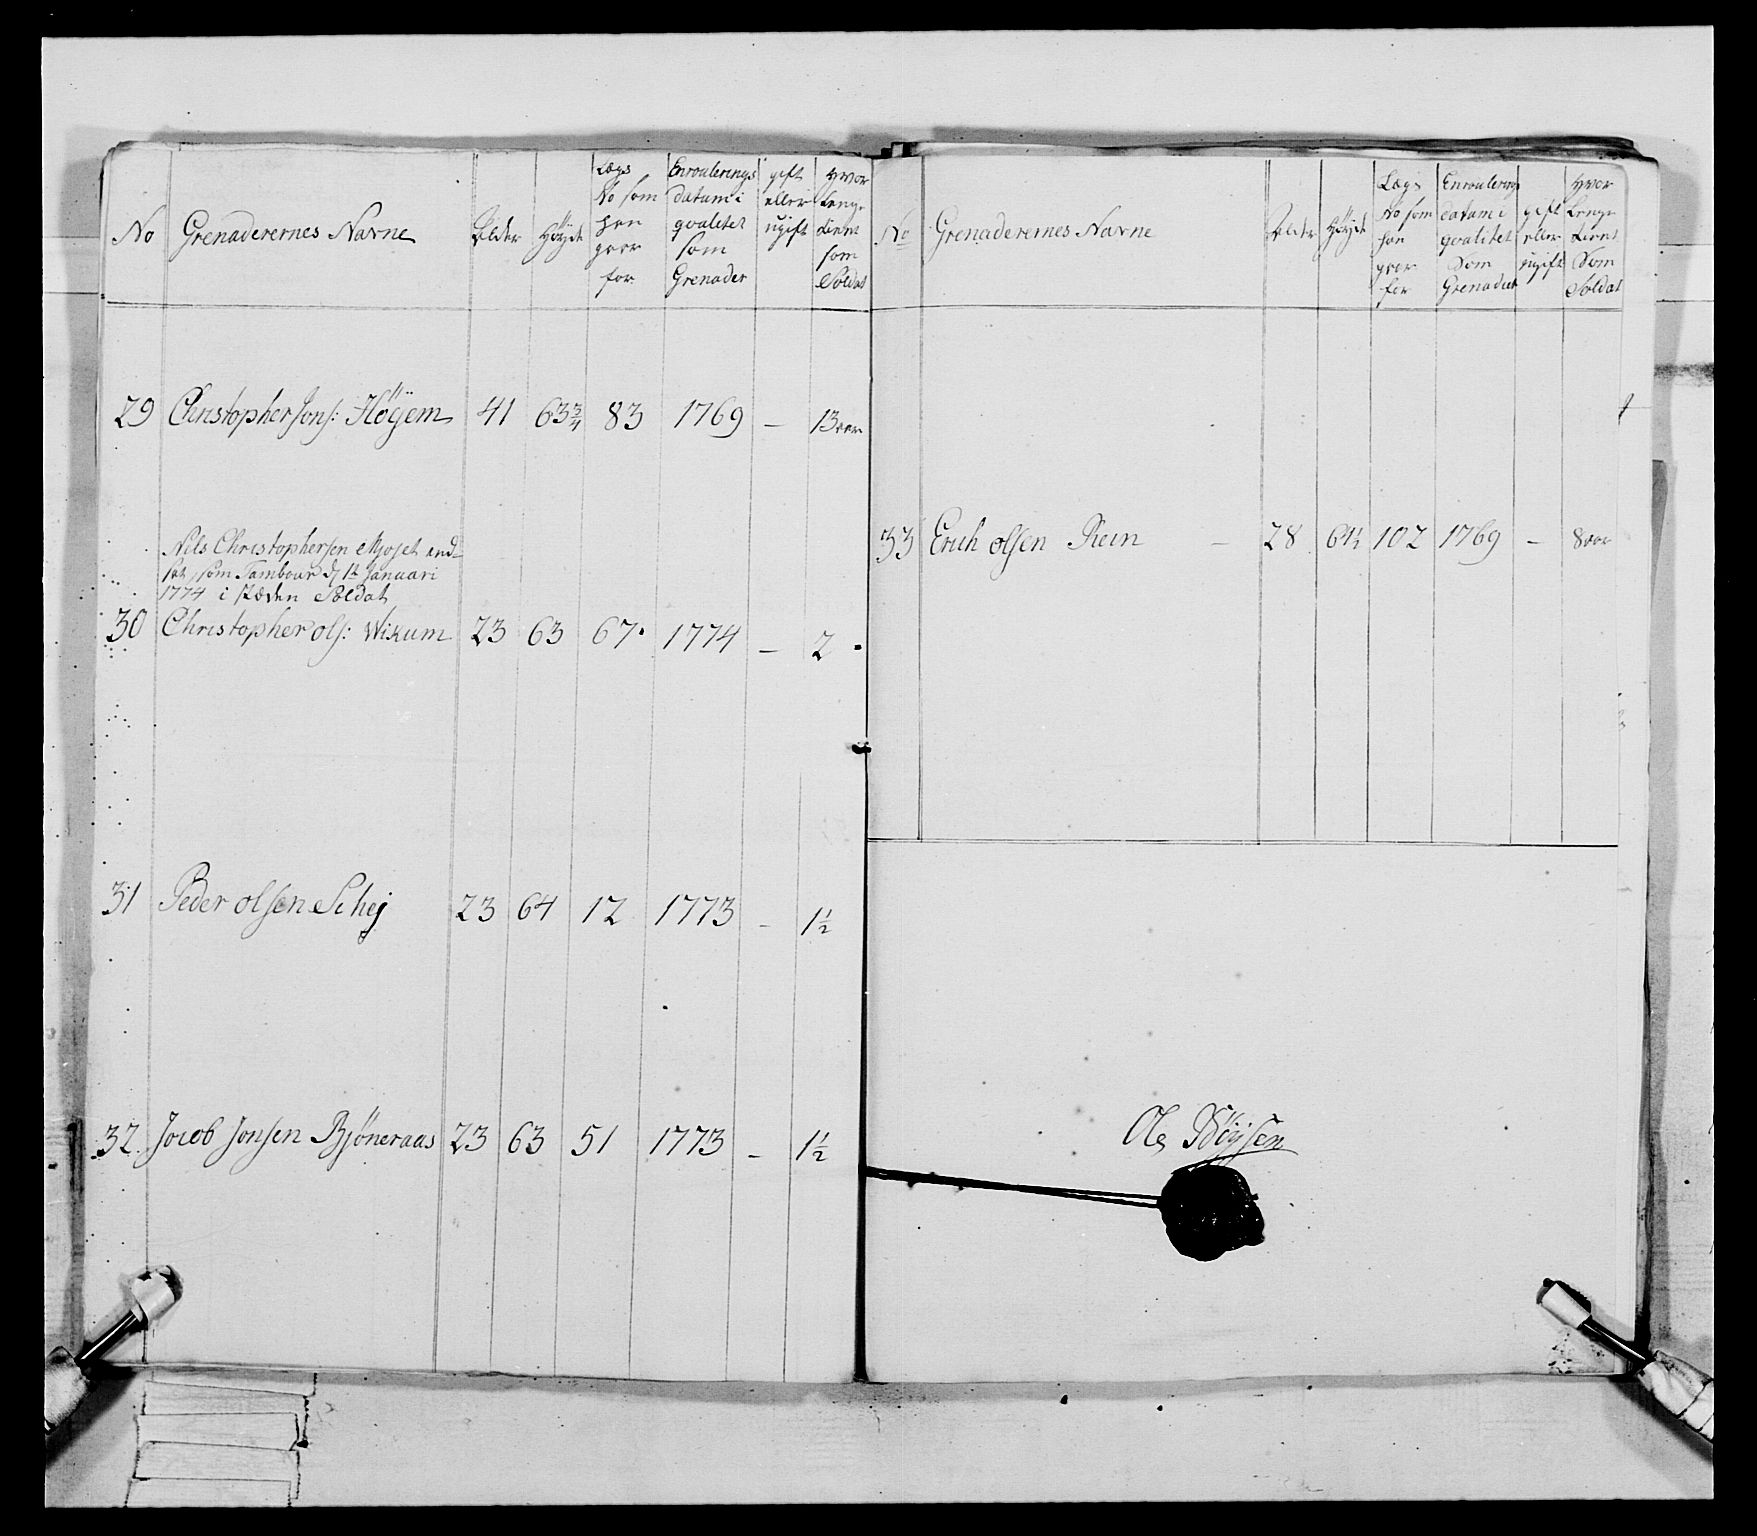 No Grenaderernes Navne Alder Höyde Lægs No som han giör for Enroulerings datum i qvalitet som Grenader gift eller ugift hvor Lenge tient som Soldat
29 Christopher Jons: Höÿem 41 63¾ 83 1769 – 13 aar
Nils Christophersen Moset and
sat som Tambour d 1t Januari
1774 i stæden Soldat
30 Christopher ols: Wikum 23 63 67 1774 – 2
31 Peder olsen Schej 23 64 12 1773 – 1½
32 Jocob Jonsen Bjöneraas 23 63 51 1773 – 1½
No Grenaderernes Navne Alder Höyde Lægs No som han giör for Enroulerings datum i qvalitet Som Grenader gift eller ugift hvor Lenge tient Som Soldat
33 Erich olsen Rein – 28 64½ 102 1769 – 8 aar
Ole Böÿsen